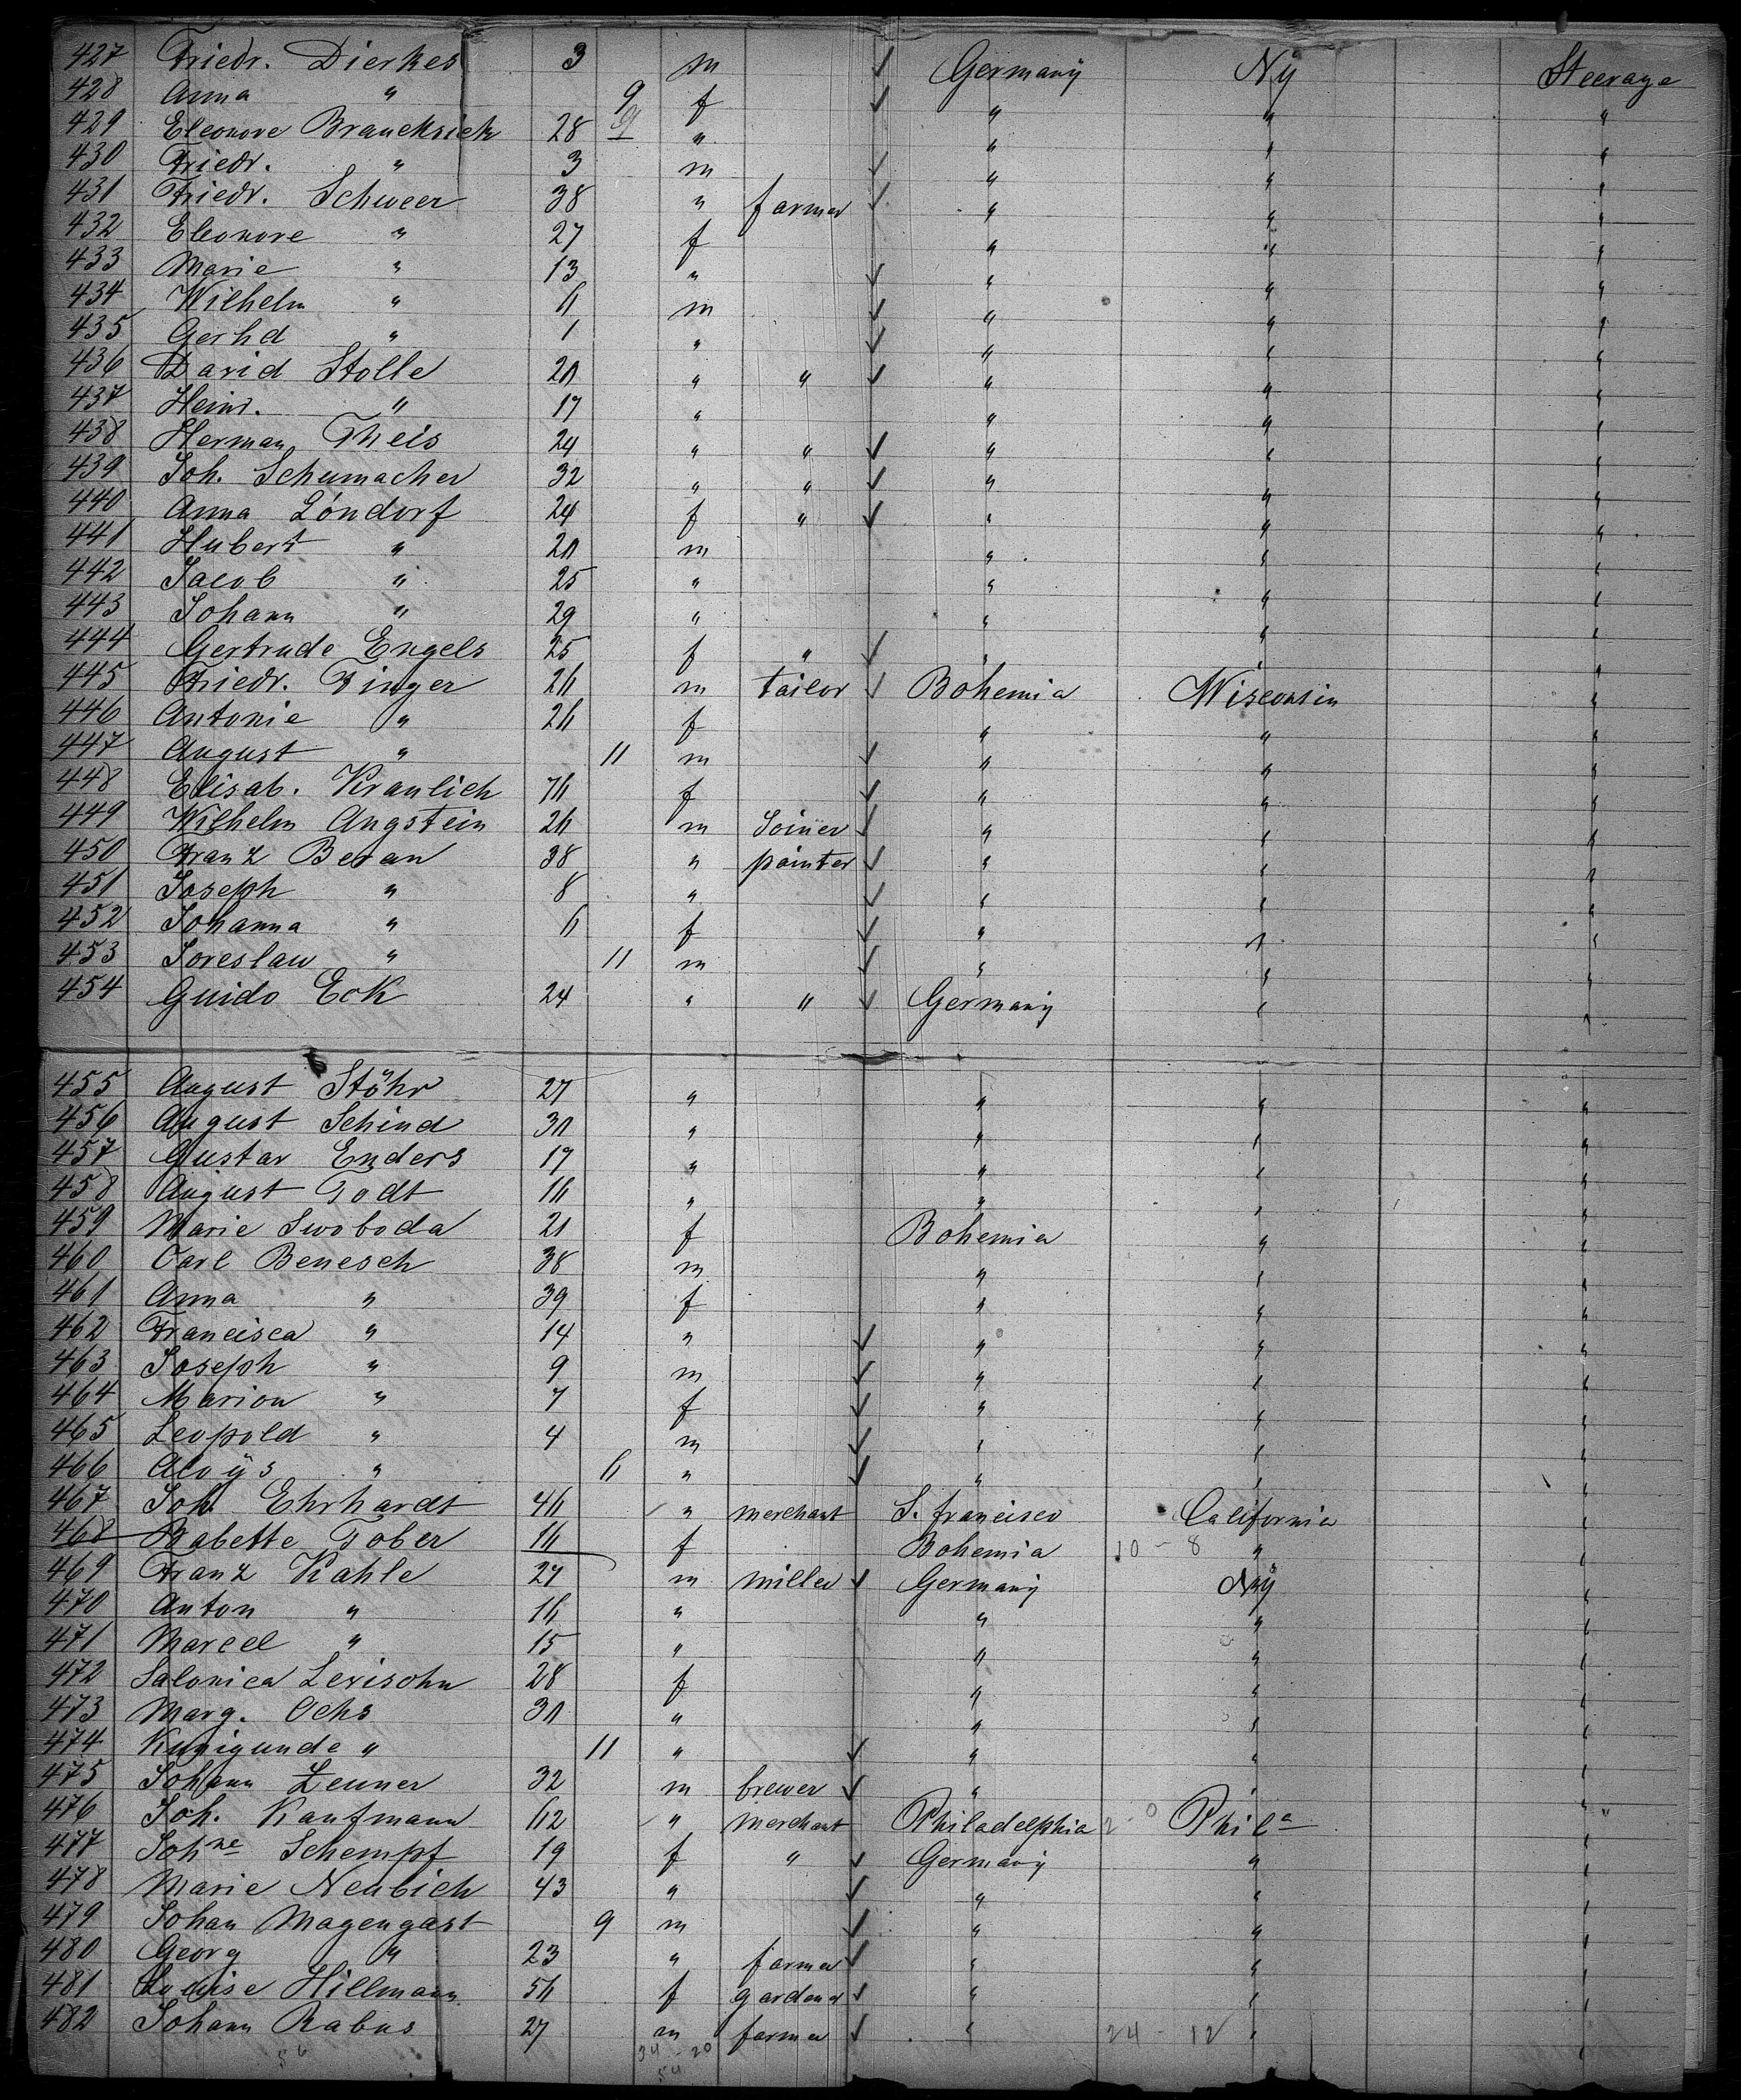 427 Friedr. Dierkes 3 m ✓ Germany Ny Steerage
428 Anna " 9 f ✓ " " "
429 Eleonore Braucksiek 28 " " " "
430 Friedr. " 3 m ✓ " " "
431 Friedr. Schweer 38 " farmer ✓ " " "
432 Eleonore " 27 f " " "
433 Marie " 13 " ✓ " " "
434 Wilhelm " 6 m ✓ " " "
435 Gerhd " 1 " ✓ " " "
436 David Stolle 20 " " ✓ " " "
437 Heinr. " 17 " " " "
438 Herman Theis 24 " " ✓ " " "
439 Joh. Schumacher 32 " " ✓ " " "
440 Anna Löndorf 24 f " ✓ " " "
441 Hubert " 20 m " " "
442 Jacob " 25 " " " "
443 Johann " 29 " " " "
444 Gertrude Engels 25 f " ✓ " " "
445 Friedr. Finger 26 m tailor ✓ Bohemia Wisconsin "
446 Antonie " 26 f " " "
447 August " 11 m ✓ " " "
448 Elisab. Kraulich 76 f ✓ " " "
449 Wilhelm Angstein 26 m Joiner ✓ " " "
450 Franz Beran 38 " painter ✓ " " "
451 Joseph " 8 " ✓ " " "
452 Johanna " 6 f ✓ " " "
453 Joreslaw " 11 m ✓ " " "
454 Guido Eck 24 " " ✓ Germany " "
455 August Stöhr 27 " " " "
456 August Schind 30 " " " "
457 Gustav Enders 17 " " " "
458 August Todt 16 " " " "
459 Marie Swoboda 20 f Bohemia " "
460 Carl Benesch 38 m " " "
461 Anna " 39 f " " "
462 Francisca " 14 " ✓ " " "
463 Joseph " 9 m ✓ " " "
464 Marion " 7 f ✓ " " "
465 Leopold " 4 m ✓ " " "
466 Aloys " 6 " ✓ " " "
467 Joh. Ehrhardt 46 " merchant S. francisco California "
468 Babette Tober 16 f Bohemia 10 - 8 " "
469 Franz Kahle 27 m miller ✓ Germany Ny "
470 Anton " 16 " " " "
471 Marcel " 15 " " " "
472 Salonica Levisohn 28 f " " "
473 Marg. Ochs 30 " " " "
474 Kunigunde " 11 " ✓ " " "
475 Johann Zeuner 32 m brewer ✓ " " "
476 Joh. Kaufmann 62 " merchant Philadelphia 2 - 0 Phila "
477 Johne Schempf 19 f " ✓ Germany " "
478 Marie Neubich 43 " ✓ " " "
479 Johan Magengast 9 m ✓ " " "
480 Georg " 23 " farmer ✓ " " "
481 Louise Hillmann 56 f gardener ✓ " " "
482 Johann Rabus 27 m farmer ✓ " 24 - 12 " "
56 34 - 20
54